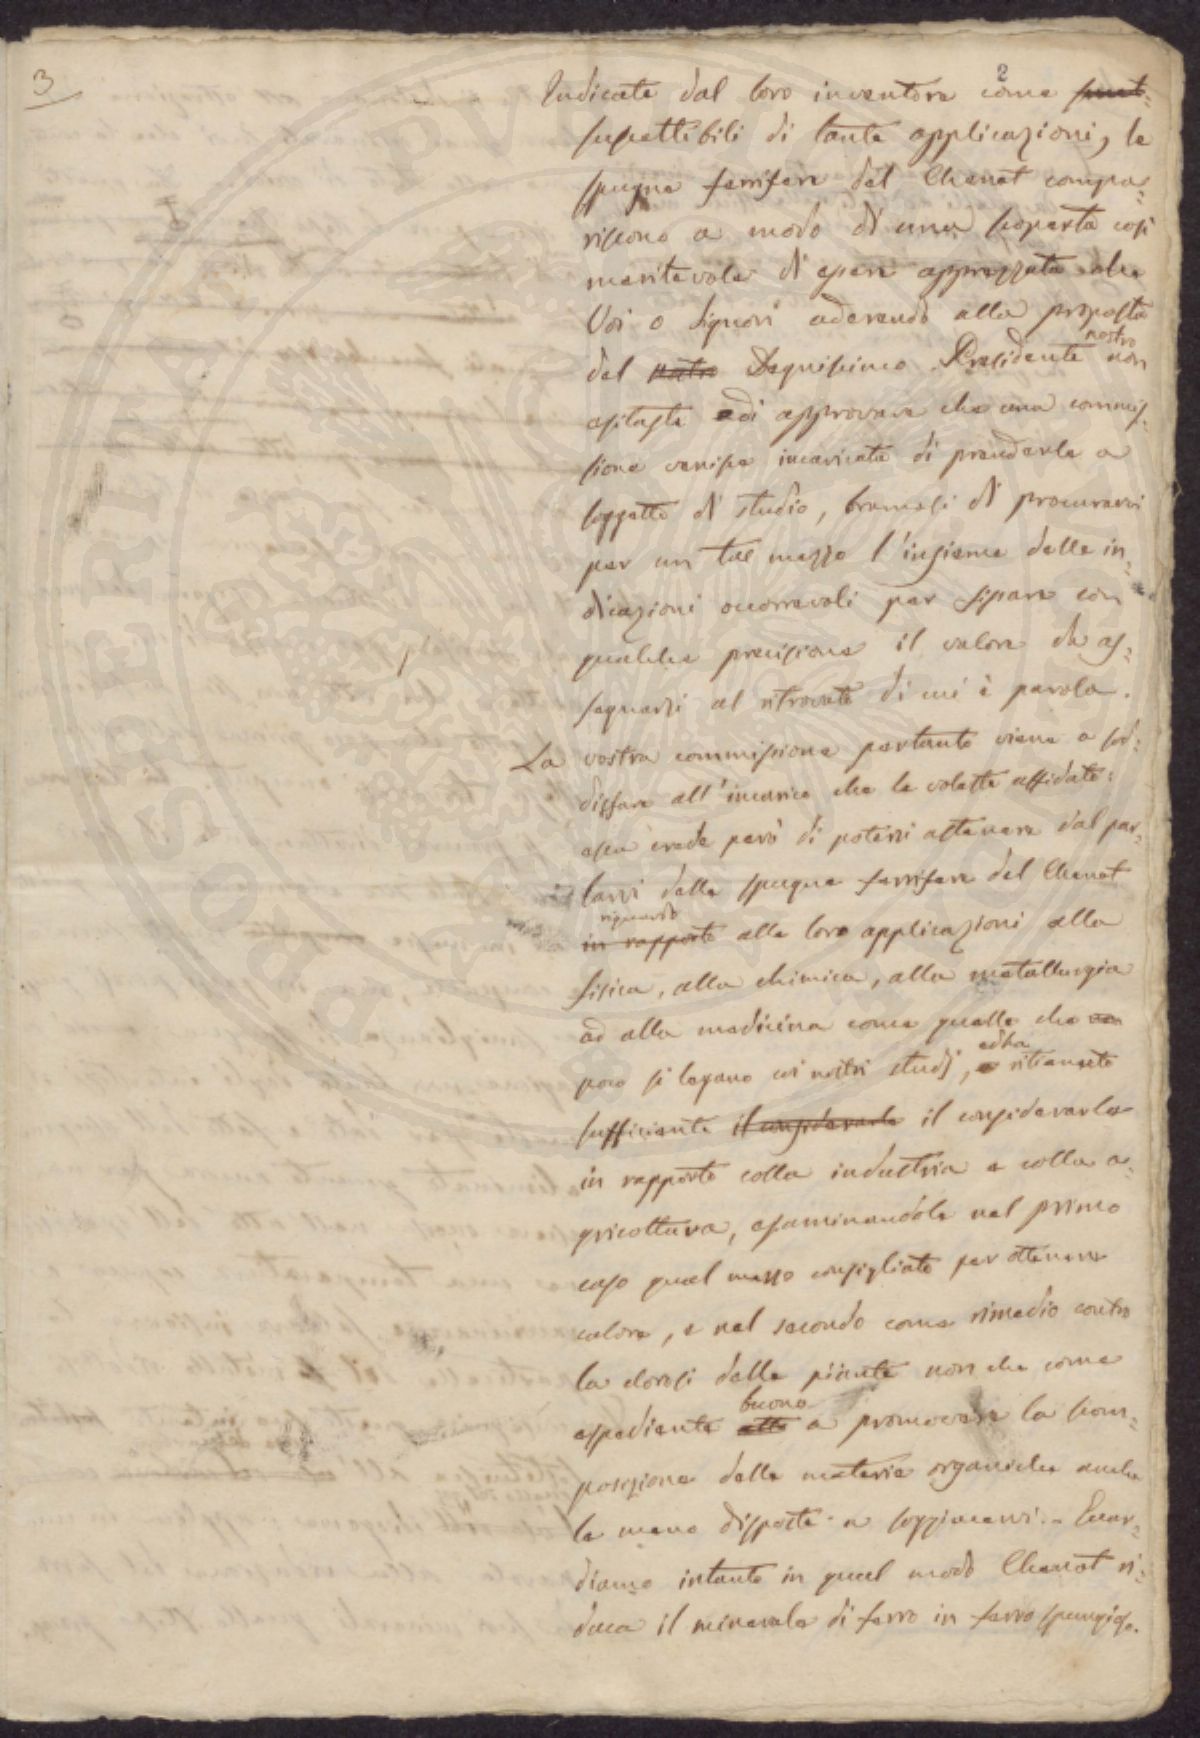 3
2
Indicate dal loro inventore come
suscettibili di tante applicazioni, le
spugne ferrifere del Chenot compa-
riscono a modo di una scoperta così
meritevole di essere apprezzata che
Voi o Signori aderendo alla proposta
nostro
del nostro Degnissimo Presidente non
esitaste di approvare che una commis-
sione venisse incaricata di prenderle a
soggetto di studio, bramosi di procurarvi
per un tal mezzo l'insieme delle in-
dicazioni occorrevoli per fissare con
qualche precisione il valore da as-
segnarsi al ritrovato di cui è parola.
La vostra commissione pertanto viene a sod-
disfare all'incarico che le voleste affidato:
essa crede però di potersi astenere dal par-
larvi delle spugne ferrifere del Chenot
riguardo
in rapporto alle loro applicazioni alla
fisica, alla chimica, alla metallurgia
ed alla medicina come quelle che
poco si legano coi nostri studj, ritenuto
ed ha
sufficiente il considerarle il considerarle
in rapporto colla industria e colla a-
gricoltura, esaminandole nel primo
caso qual mezzo consigliato per ottenere
calore, e nel secondo come rimedio contro
la clorosi delle piante non che come
buono
espediente atto a promovere la scom-
posizione delle materie organiche anche
le meno disposte a soggiacervi. - Guar-
diamo intanto in qual modo Chenot ri-
duca il minerale di ferro in ferro spungioso.